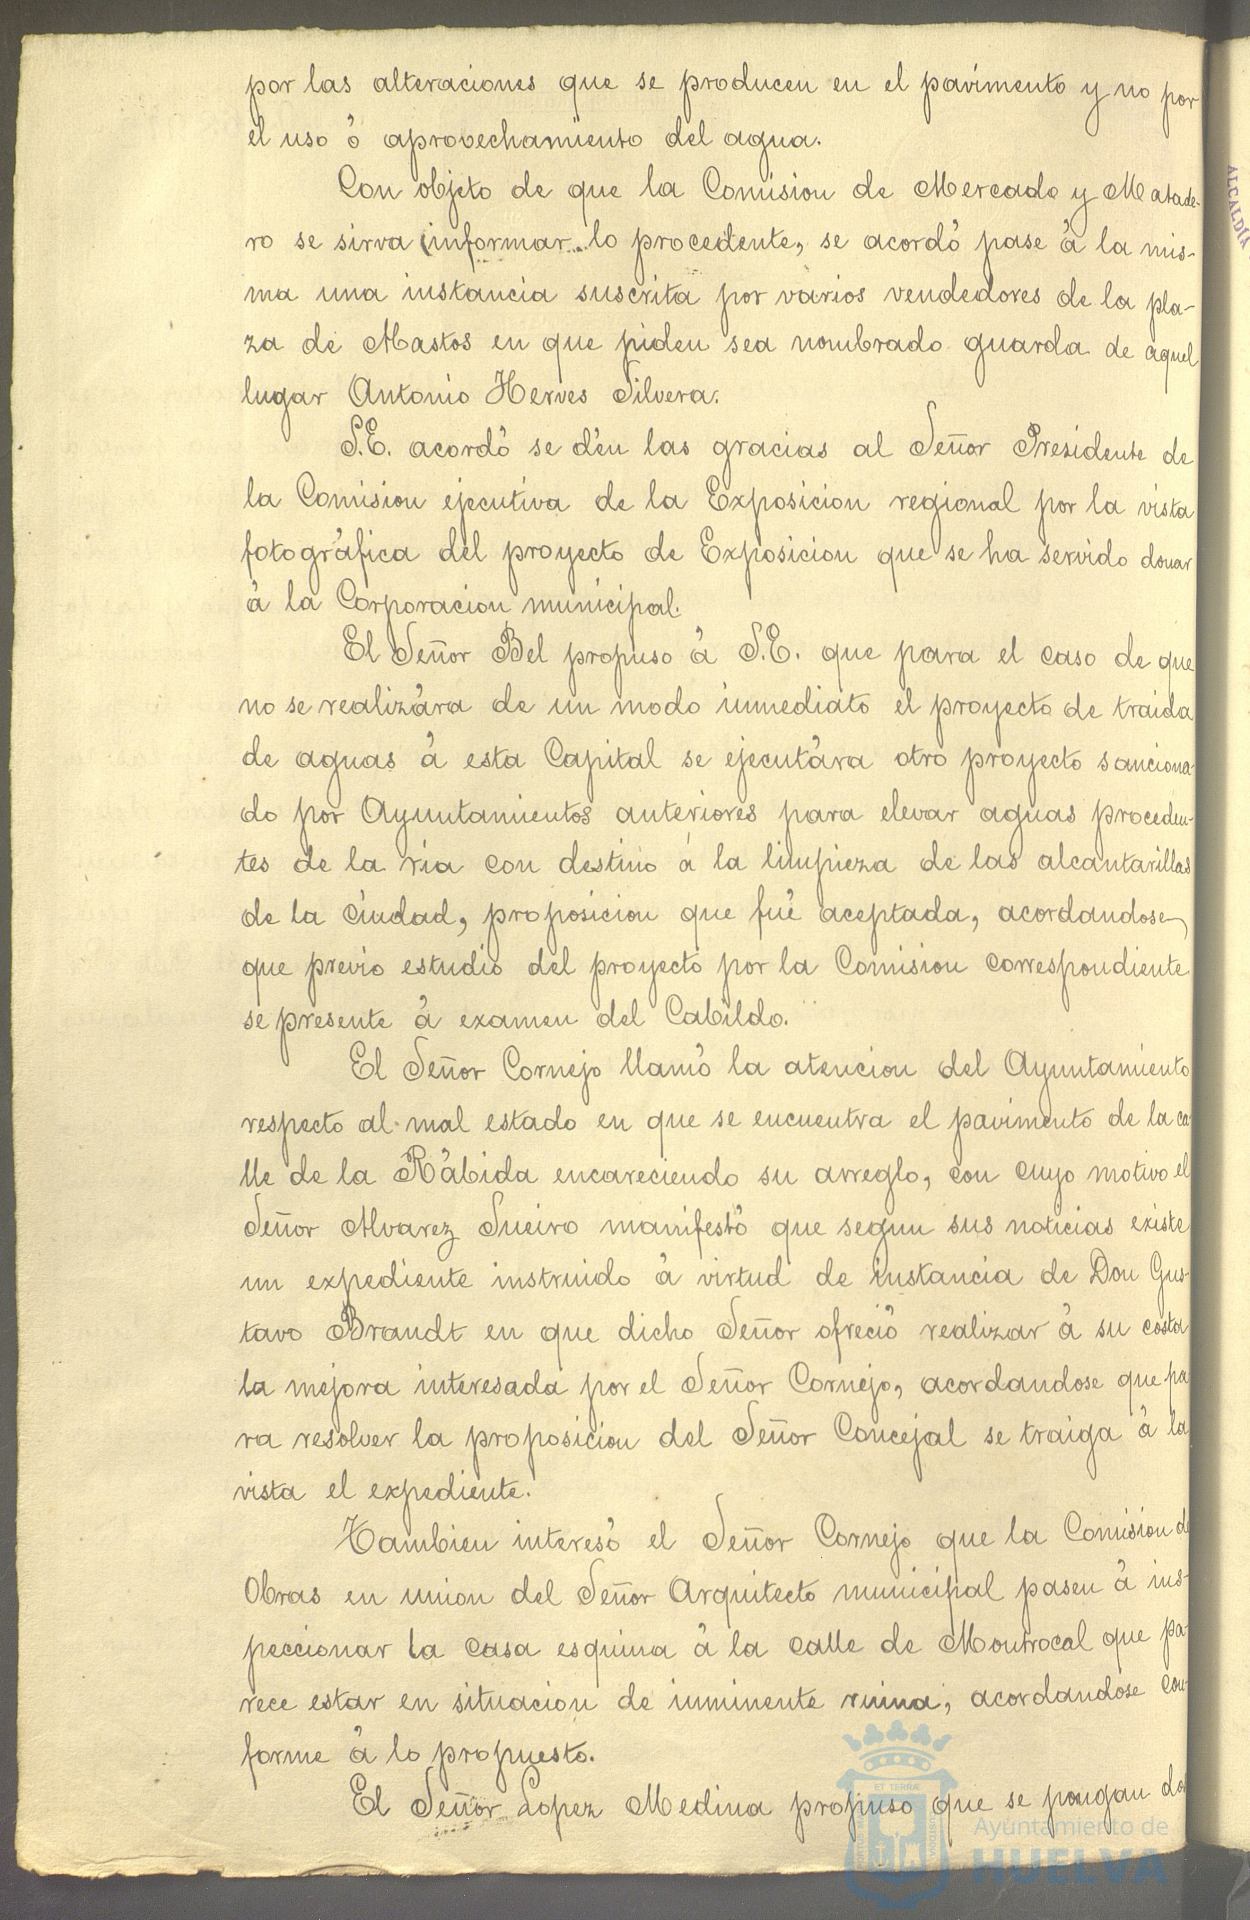 por las alteraciones que se producen en el pavimento y no por
el uso ó aprovechamiento del agua.
Con objeto de que la Comision de Mercado y Matade-
ro se sirva informar lo procedente, se acordó pase á la mis-
ma una instancia suscrita por varios vendedores de la pla-
za de Mastos en que piden sea nombrado guarda de aquel
lugar Antonio Herves Silvera.
S.E. acordó se dén las gracias al Señor Presidente de
la Comision ejecutiva de la Exposicion regional por la vista
fotográfica del proyecto de Exposicion que se ha servido donar
á la Corporacion municipal.
El Señor Bel propuso á S.E. que para el caso de que
no se realizára de un modo inmediato el proyecto de traida
de aguas á esta Capital se ejecutára otro proyecto sanciona-
do por Ayuntamientos anteriores para elevar aguas proceden-
tes de la ria con destino á la limpieza de las alcantarillas
de la Ciudad, proposicion que fué aceptada, acordandose
que previo estudio del proyecto por la Comision correspondiente
se presente á examen del Cabildo.
El Señor Cornejo llamó la atencion del Ayuntamiento
respecto al mal estado en que se encuentra el pavimento de la ca
lle de la Rábida encareciendo su arreglo, con cuyo motivo el
Señor Alvarez Sueiro manifestó que segun sus noticias existe
un expediente instruido á virtud de instancia de Don Gus-
tavo Brandt en que dicho Señor ofreció realizar á su costa
la mejora interesada por el Señor Cornejo, acordandose que pa
ra resolver la proposicion del Señor Concejal se traiga á la
vista el expediente.
Tambien interesó el Señor Cornejo que la Comision de
Obras en union del Señor Arquitecto municipal pasen á ins-
peccionar la casa esquina á la calle de Montrocal que pa-
rece estar en situacion de inminente ruina, acordandose con-
forme á lo propuesto.
El Señor Lopez Medina propuso que se pongan dos
ALCALDÍA
ET TERRÆ
Ayuntamiento de
HUELVA